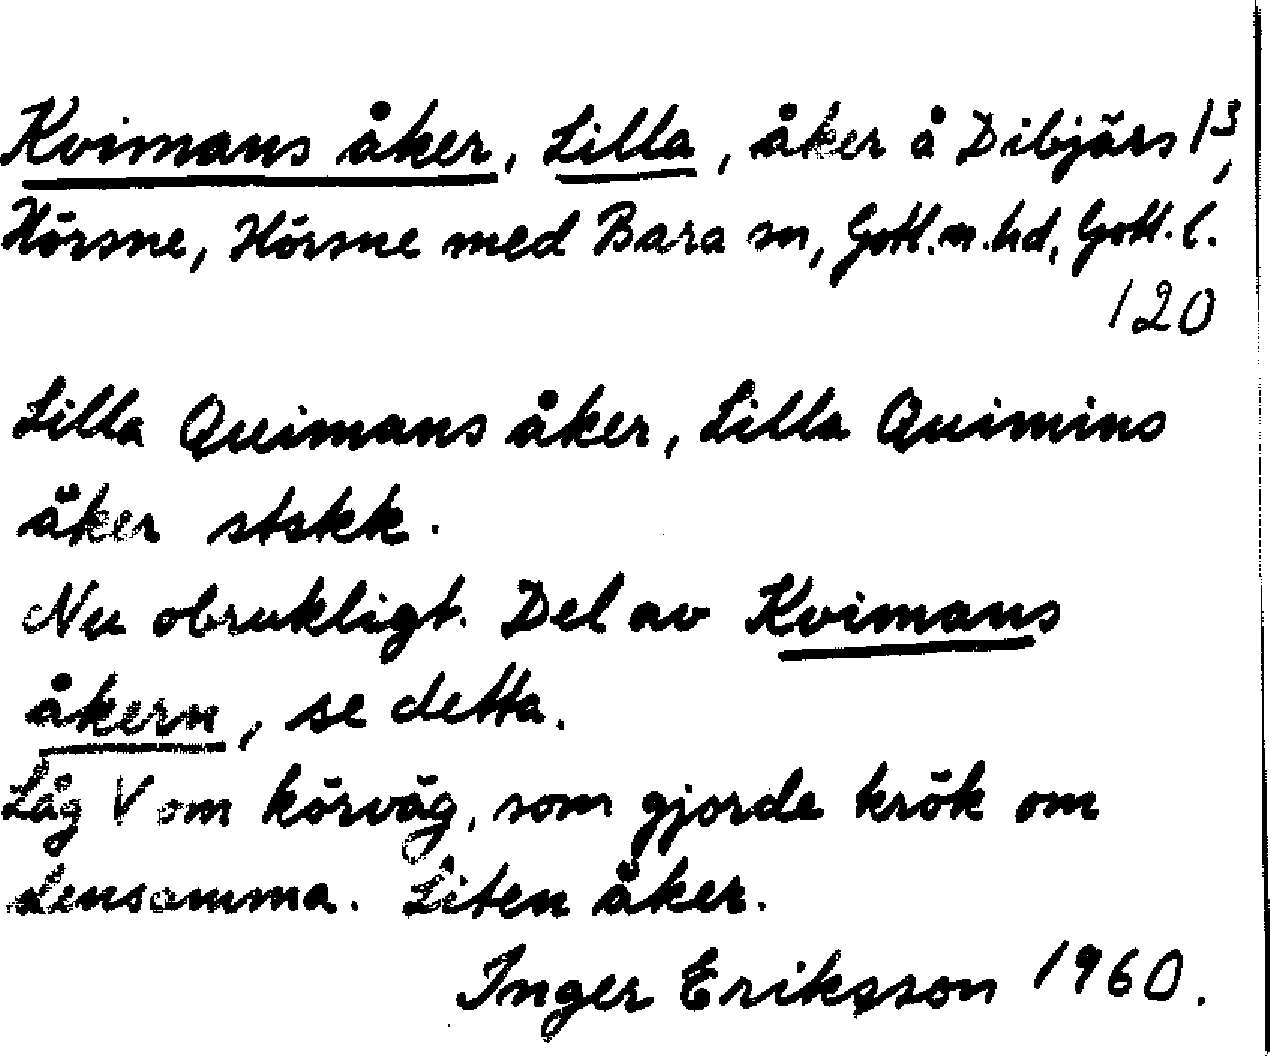 Kvimans åker, Lilla, åker å Dibjärs 1³,
Hörsne, Hörsne med Bara sn, Gotl. n. hd, Gotl. l.
120
Lilla Quimans åker, Lilla Quimins
åker stskk.
Nu obrukligt. Del av Kvimans
åkern, se detta.
Låg V om körväg, som gjorde krök om
densamma. Liten åker.
Inger Eriksson 1960.